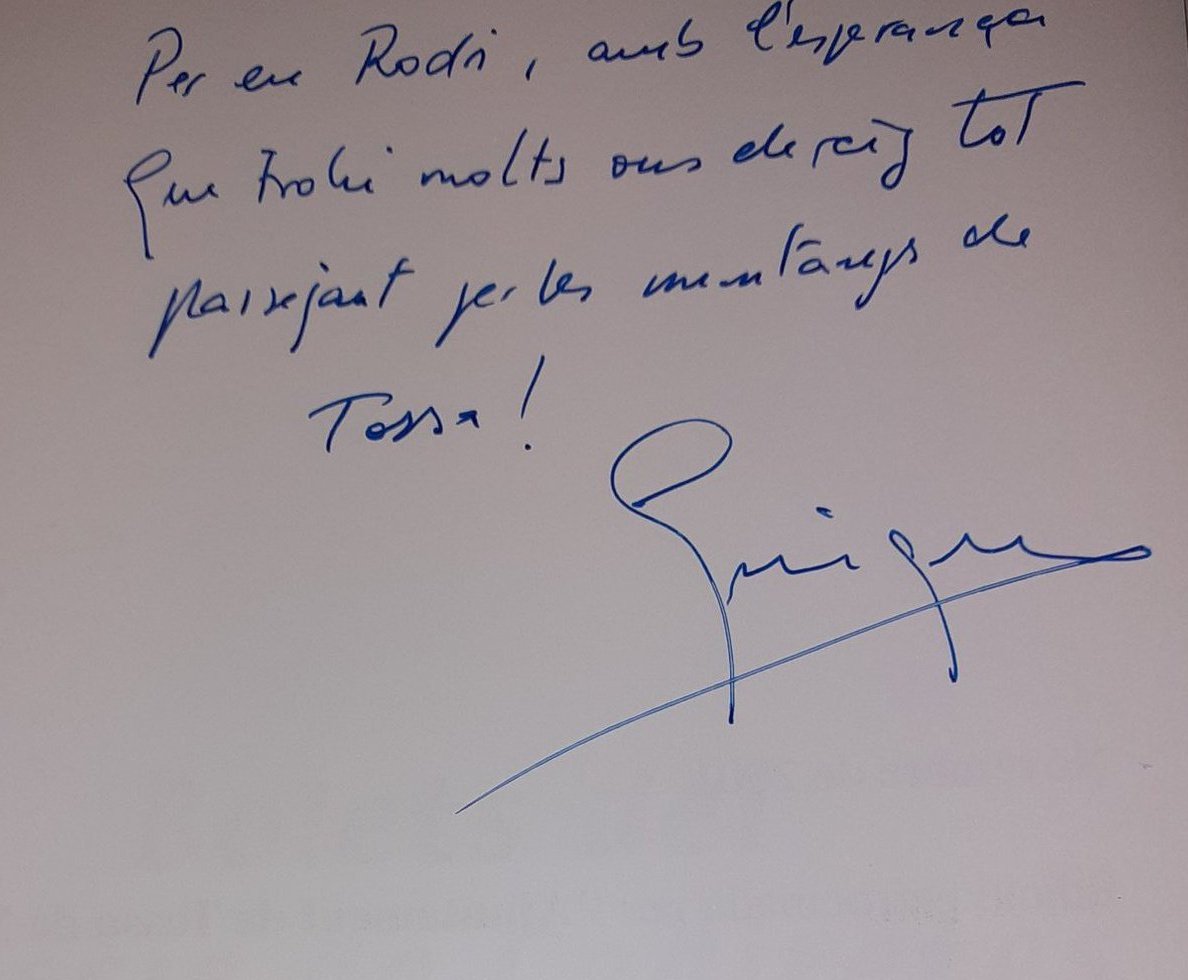 Per en Rodri, amb l'esperança
que trobi molts ous de reig tot
passejant per les muntanyes de
Tossa!